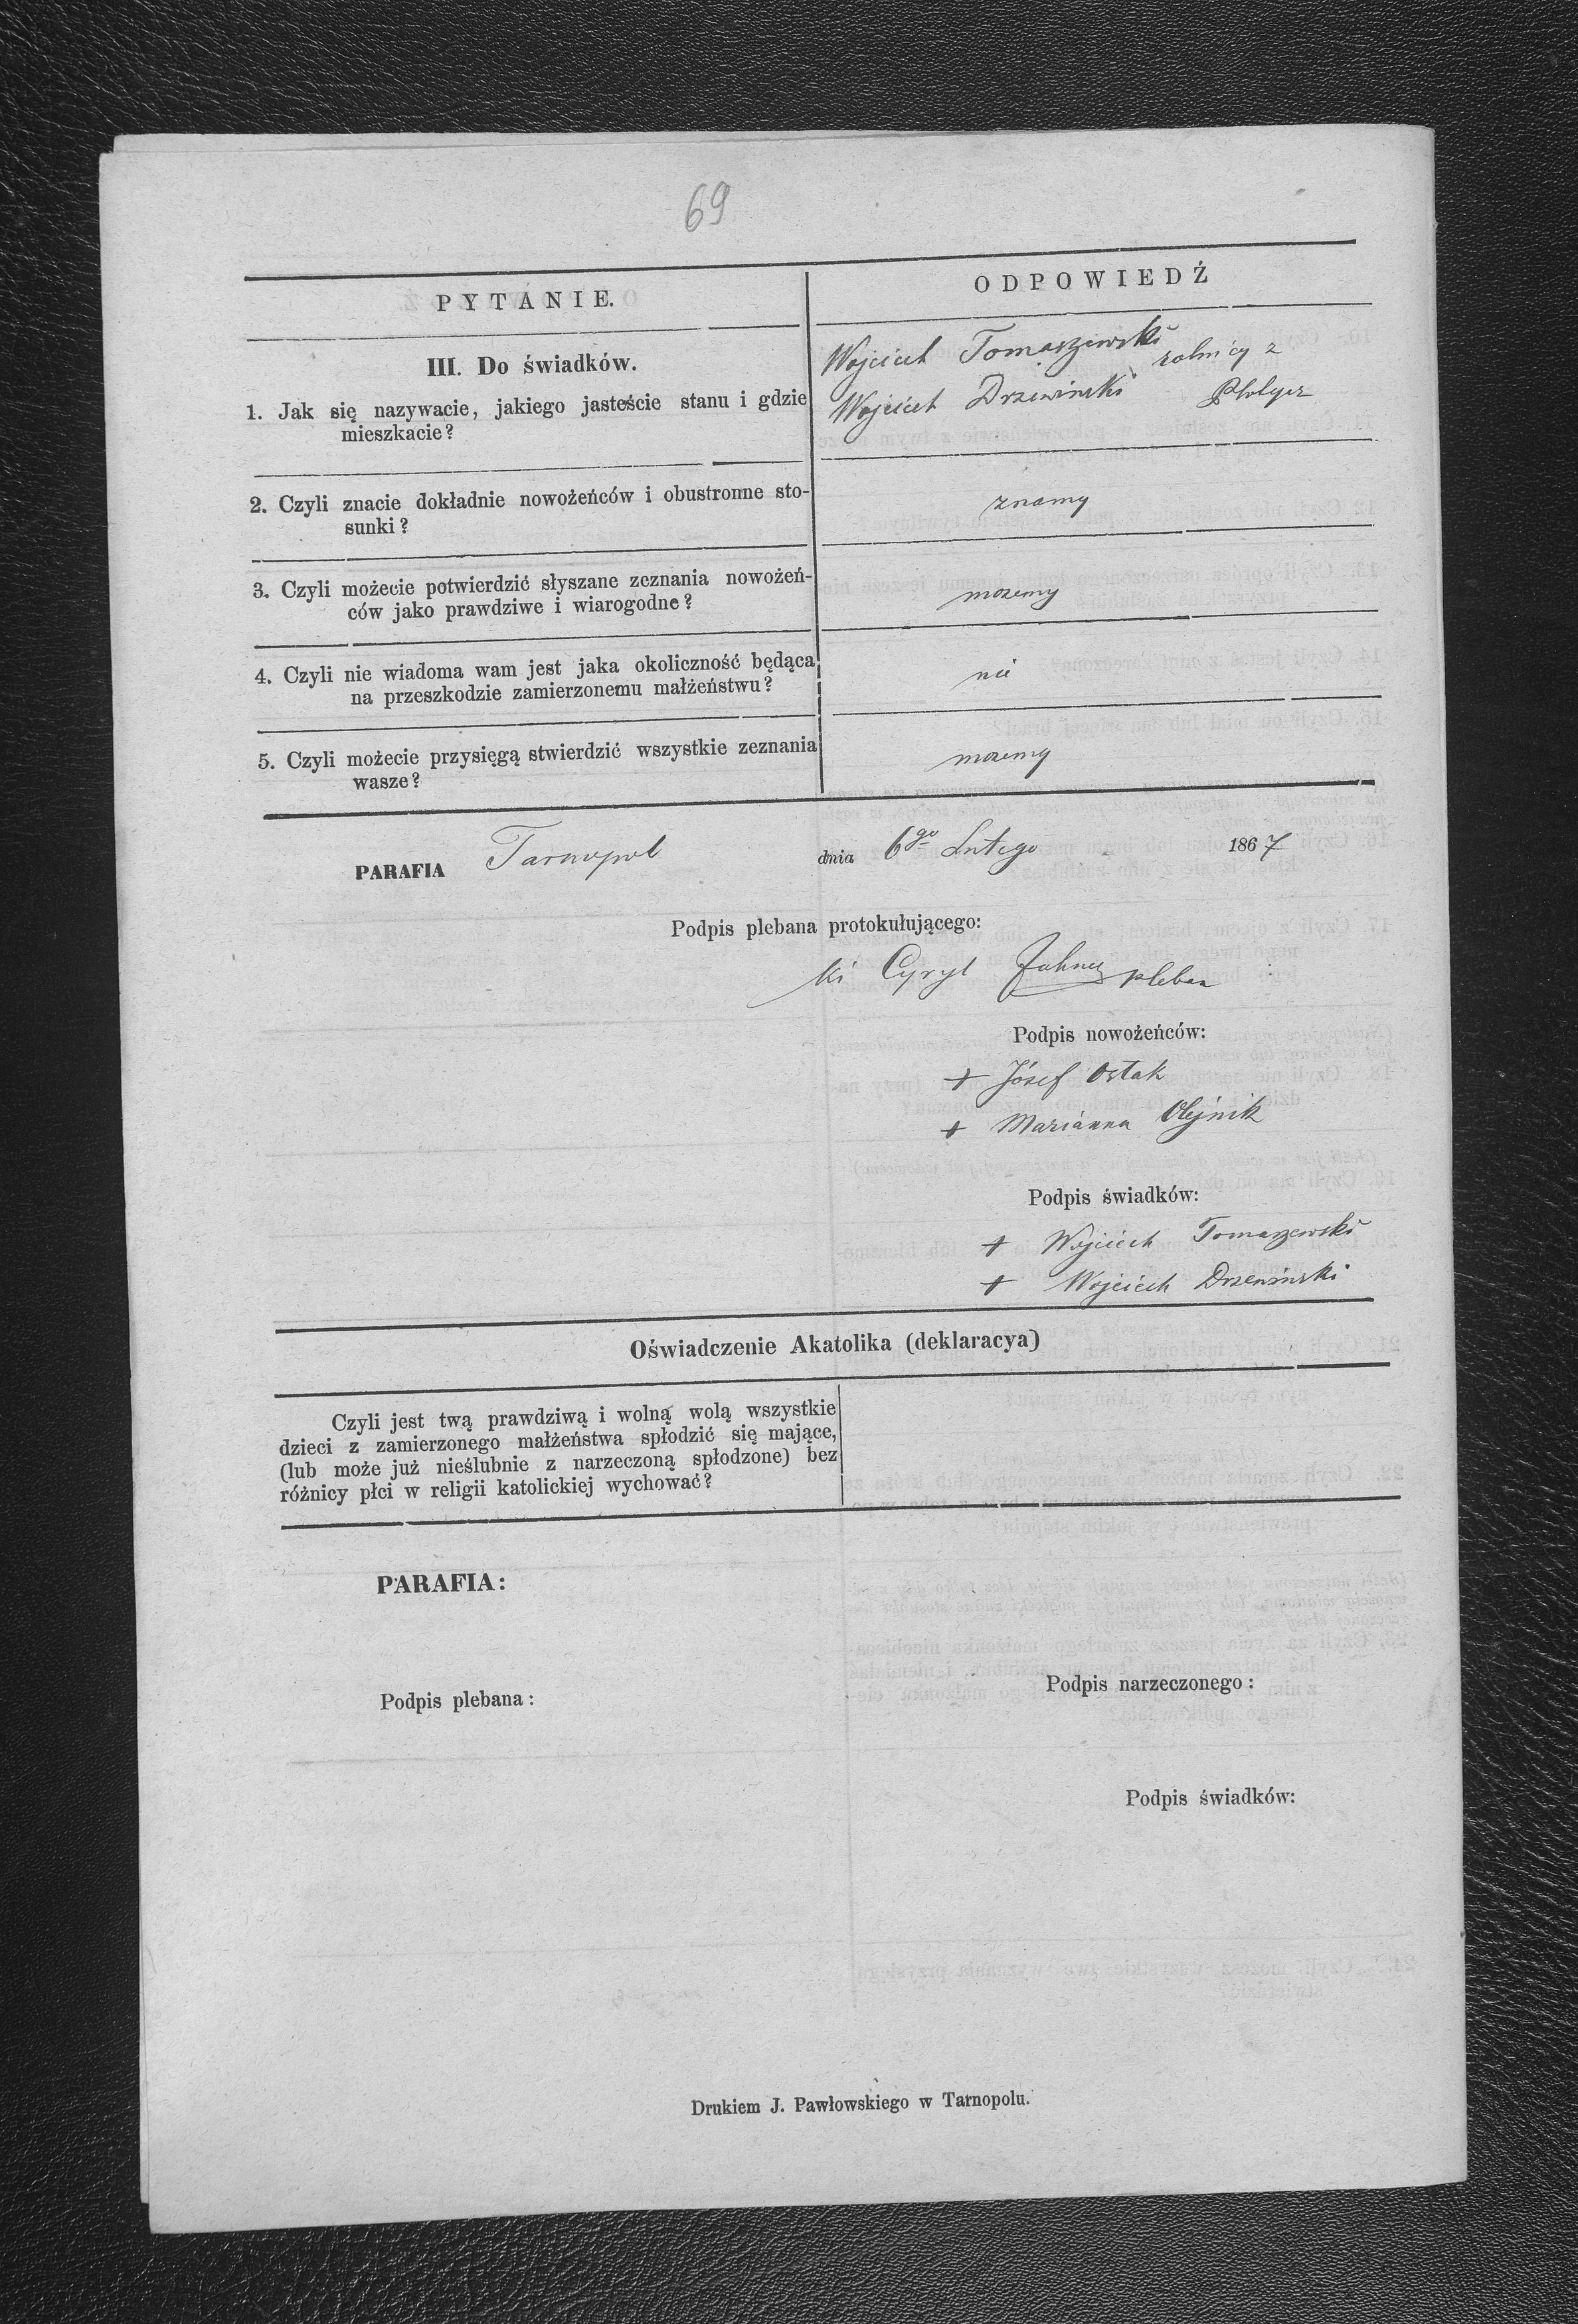 69
PYTANIE.
ODPOWIEDŹ
III. Do świadków.
1. Jak się nazywacie, jakiego jasteście stanu i gdzie
mieszkacie?
Wojciech Tomaszewski rolnicy z
Wojciech Drzewinski
2. Czyli znacie dokładnie nowożeńców i obustronne sto-
sunki?
znamy
3. Czyli możecie potwierdzić słyszane zeznania nowożeń-
ców jako prawdziwe i wiarogodne?
możemy
4. Czyli nie wiadoma wam jest jaka okoliczność będąca
na przeszkodzie zamierzonemu małżeństwu?
nie
5. Czyli możecie przysięgą stwierdzić wszystkie zeznania
wasze?
możemy
PARAFIA Tarnopol dnia 6go Lutego 1867
Podpis plebana protokułującego:
Cyryl pleban
Podpis nowożeńców:
+ Józef Ostak
+ Marianna Olejnik
Podpis świadków:
+ Wojciech Tomaszewski
+ Wojciech Drzewinski
Oświadczenie Akatolika (deklaracya)
Czyli jest twą prawdziwą i wolną wolą wszystkie
dzieci z zamierzonego małżeństwa spłodzić się mające,
(lub może już nieślubnie z narzeczoną spłodzone) bez
różnicy płci w religii katolickiej wychować?
PARAFIA:
Podpis plebana:
Podpis narzeczonego:
Podpis świadków:
Drukiem J. Pawłowskiego w Tarnopolu.